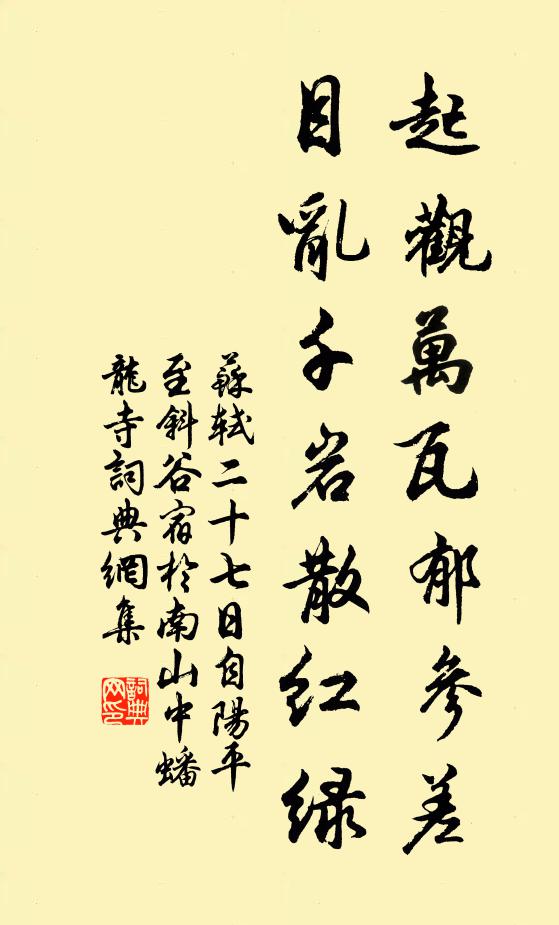 起觀萬瓦郁參差
目亂千岩散红緑
蘇軾二十七日自陽平
至斜谷宿於南山中蟠
龍寺詞典網集
詞典
网印